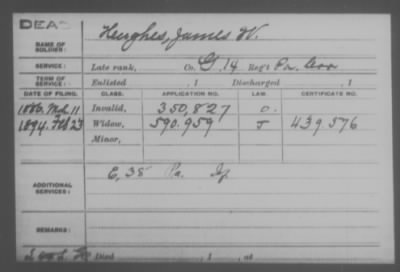 DEAD
NAME OF SOLDIER: Hughes, James W.
SERVICE: Late rank, Co. G. 14 Reg't Pa. Cav
TERM OF SERVICE: Enlisted , 1 Discharged , 1
DATE OF FILING. CLASS. APPLICATION NO. LAW. CERTIFICATE NO.
1886. Mch. 11 Invalid, 350,827 O.
1894. Feb 23 Widow, 590.959 J 439.576
Minor,
ADDITIONAL SERVICES: E, 38 Pa.
REMARKS:
Died , 1 , at